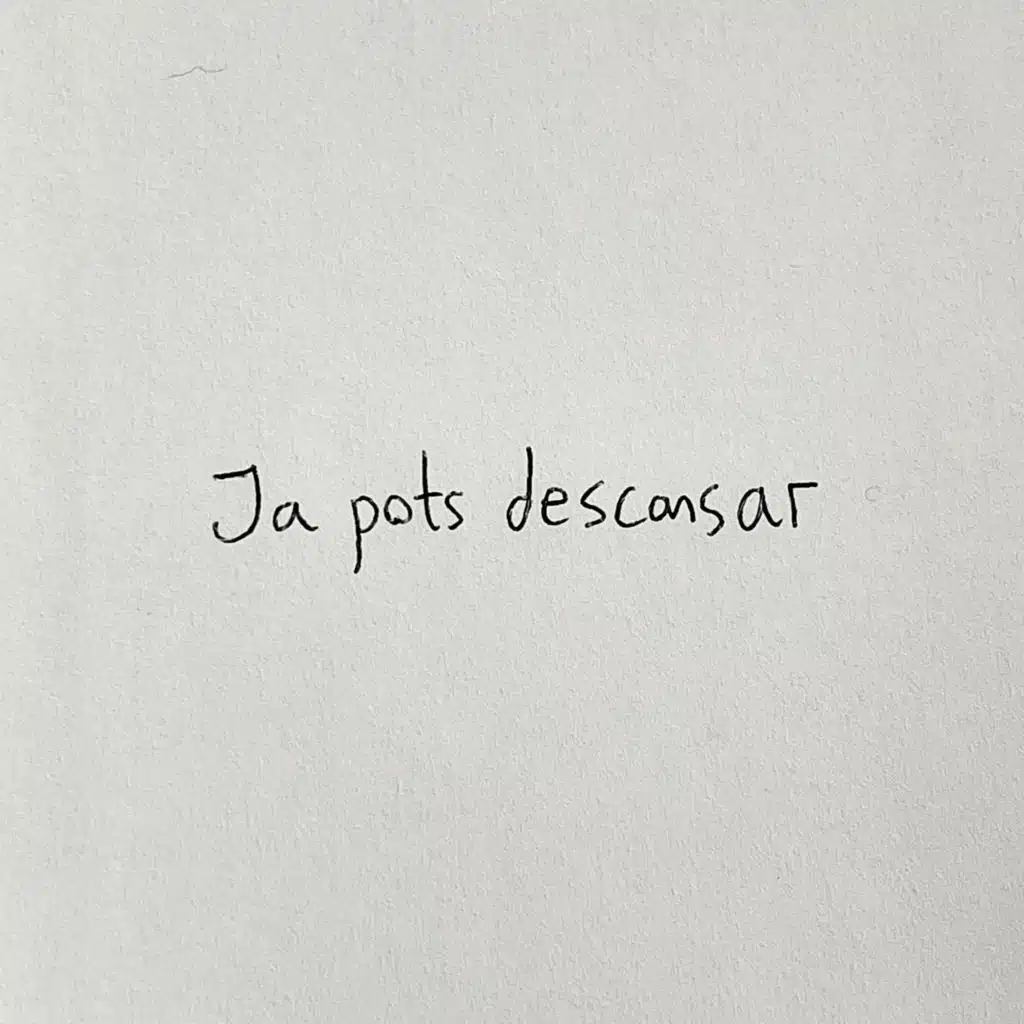 Ja pots descansar